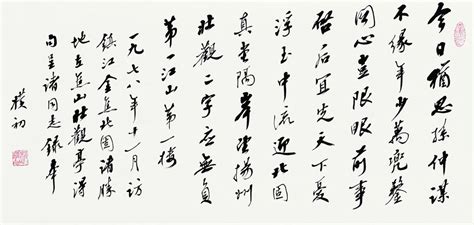 今日犹思孙仲谋
不缘年少万兜鍪
图心岂限眼前事
启后宜先天下忧
浮玉中流迎北固
真堂隔岸望扬州
壮观二字应无负
第一江山第一楼
一九七八年十一月访
镇江金焦北固诸胜
地主焦山壮观亭得
句呈诸同志录奉
朴初